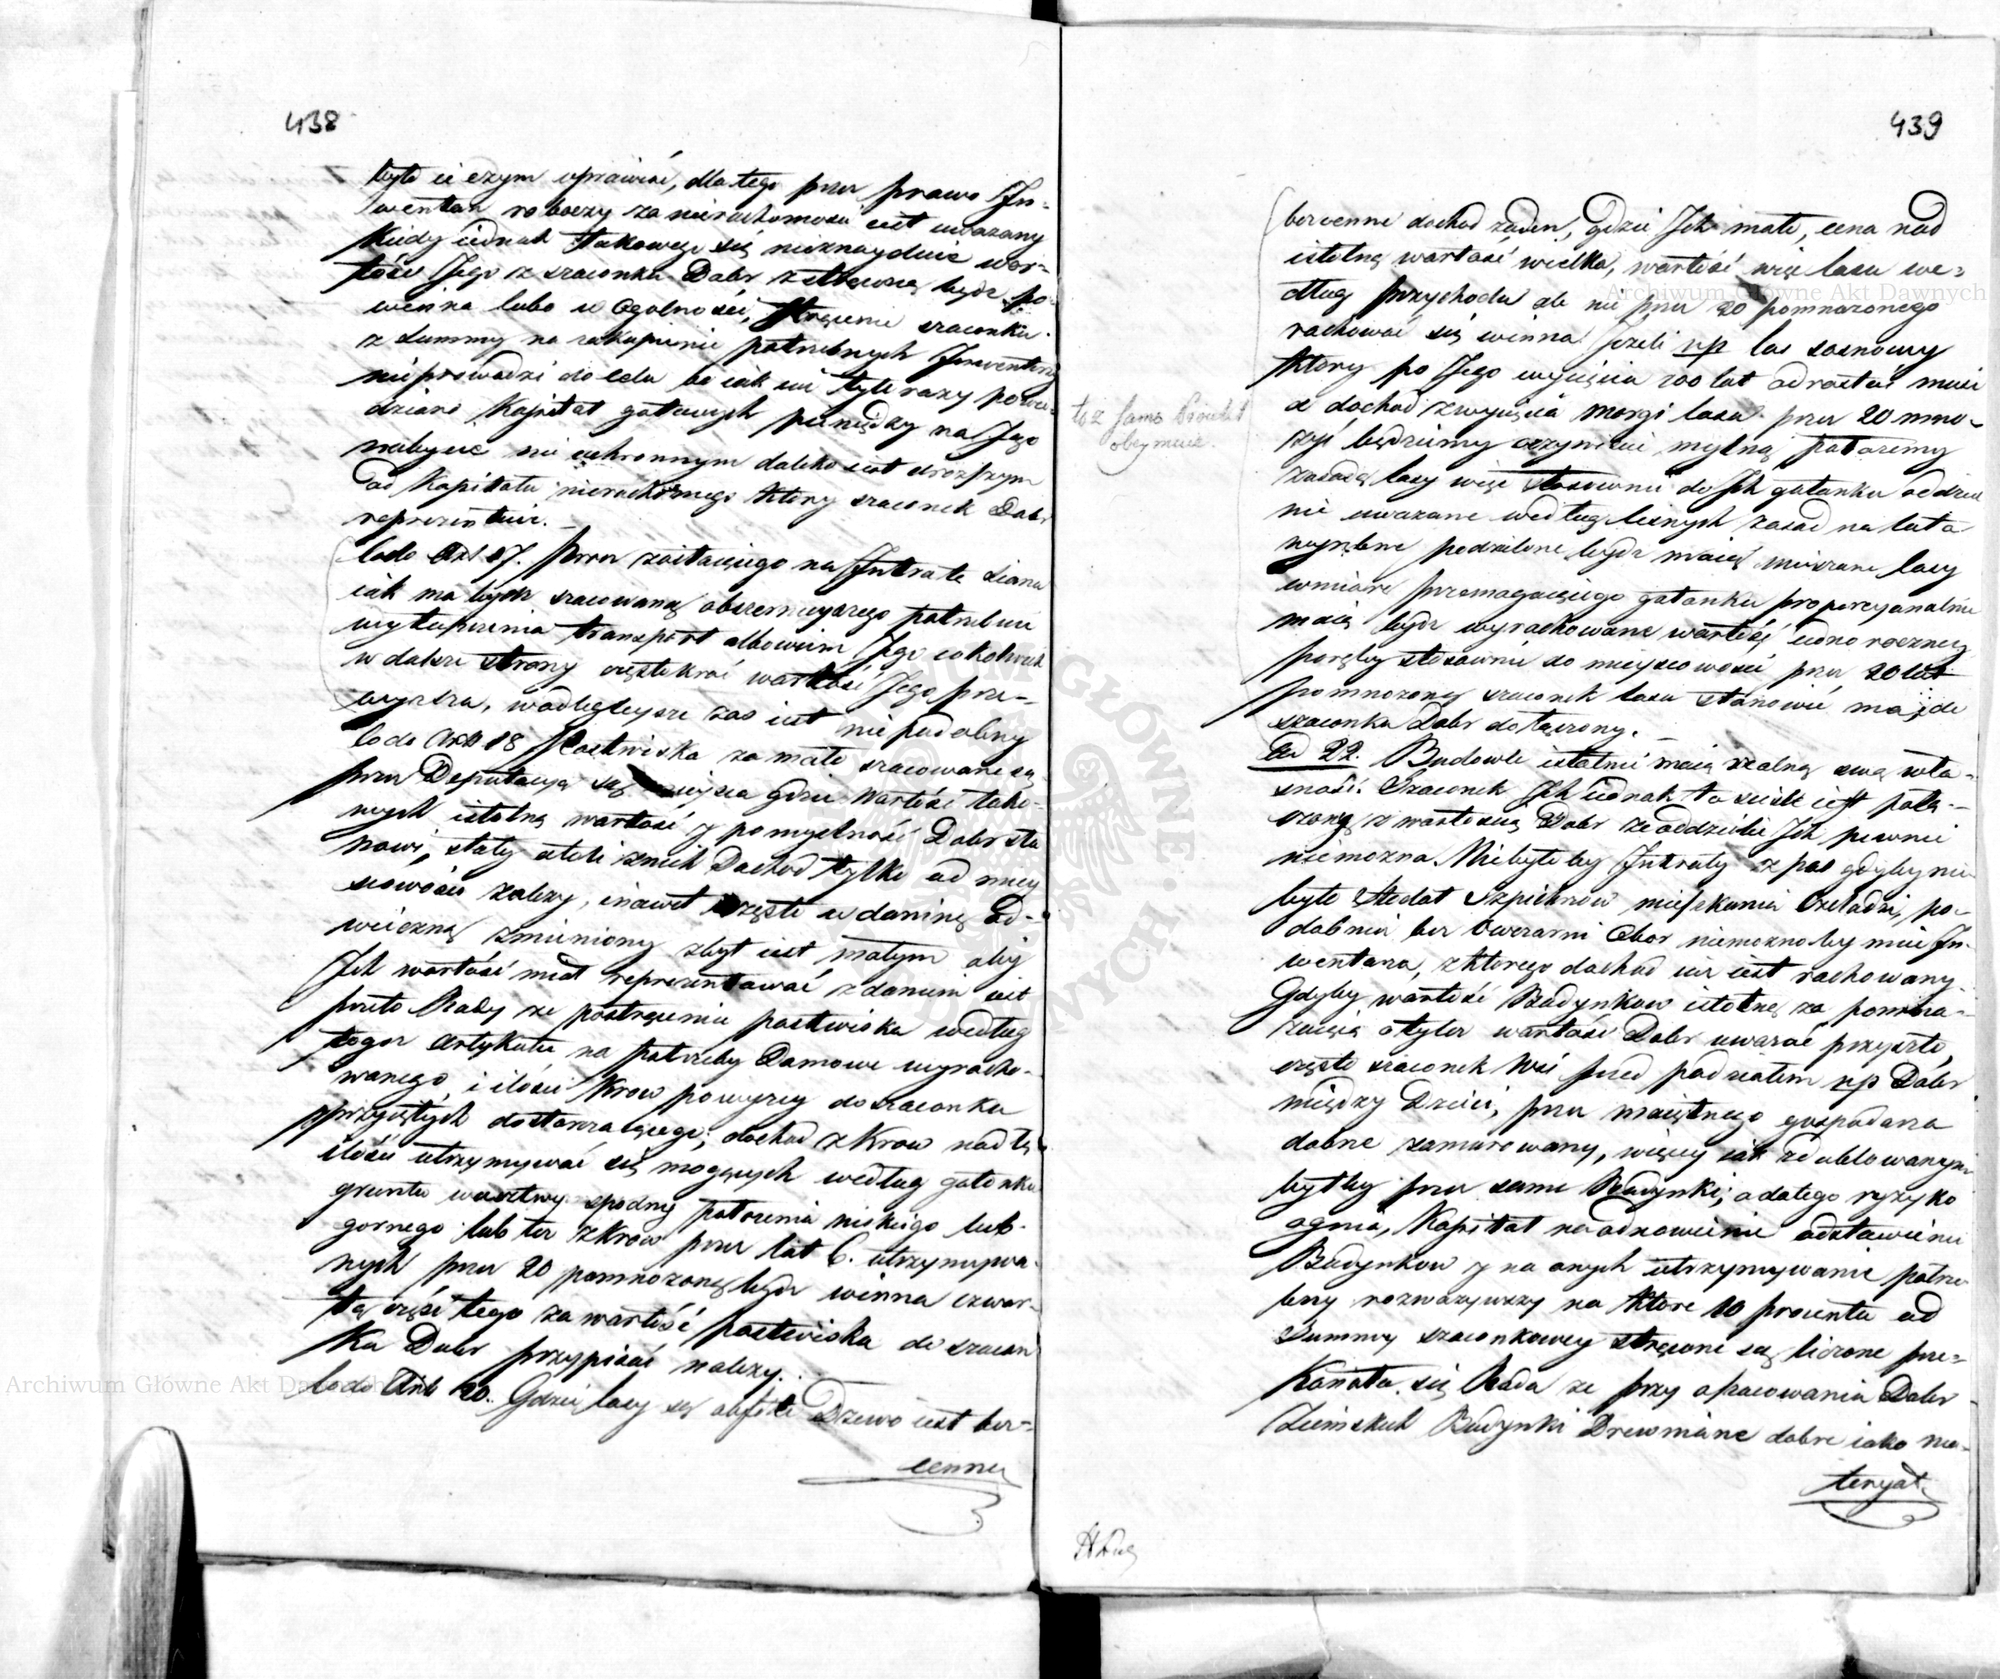 438
było ci czym uprawiać, dla tego przez prawo In-
wentarz roboczy za nieruchomość iest uważany
Kiedy iednak takowego się nieznayduie war-
tość Jego z szacunku Dobr zciągniona bydź po-
winna lubo w Ogolności, strącenie szacunku
z Summy na zakupienie potrzebnych Inwentarzy
nieprowadzi do celu bo iak iuż tyle razy powie-
dziano Kapitał gotowych pieniędzy na Jego
nabycie nieuchronnym daleko iest droższym
od Kapitału nieruchomego który szacunek Dobr
reprezentuie.
Co do Art 17. Przez zostaiącego na Intratę Siana
iak ma bydź szacowaną obszernieyszego potrzebuie
wytłuszczenia transport albowiem Jego cokolwiek
w dalsze strony częstokroć wartość Jego prze-
wyższa, w odległeysze zaś iest niepodobny
Co do Art 18 Pastwiska za mało szacowane są
przez Deputacyą są mieysca gdzie wartość tako-
wych istotną wartość y pomyślność Dobr sta
nowi, stały ieżeli znich Dochod tylko od miey
scowości zależy, i nawet często w daninę Od-
wieczną zmieniony zbyt iest małym aby
Ich wartość miał reprezentować zdaniem iest
przeto Rady że postrąceniu pastwiska według
tegoż Artykułu na potrzeby Domowe wyracho-
wanego, i ilości Krow powyżey do szacunku
przyiętych dostarczaiącego; dochod z Krow nad tę
ilość utrzymywać się mogących według gatunku
gruntu warstwy spodney położenia niskiego lub
gornego lub też z Krow przez lat 6. utrzymywa-
nych przez 20 pomnożoną bydź winna czwar-
tą część tego za wartość pastwiska do szacun
ku Dobr przypisać należy.
Co do Art 20. Gdzie lasy są obfite Drzewo iest bez-
cenne
439
bezcenne dochod żaden, gdzie Ich mało, cena nad
istotną wartość wielka, wartość więc lasu we-
dług przychodu ale nie przez 20 pomnożonego
rachować się winna Jeżeli np las sosnowy
który po Jego wycięciu 100 lat odrastać musi
a dochod z wycięcia morgi lasu przez 20 mno-
żyć będziemy oczywiście mylną położemy
zasadę lasy więc stosownie do Ich gatunku oddziel
nie uważane według leśnych zasad na lata
wyrębne podzielone bydź maią mieszane lasy
w miarę przemagaiącego gatunku proporcyonalnie
maią bydź wyrachowane wartość iedno roczney
poręby stosownie do mieyscowości przez 20 lat
pomnożoney szacunek lasu stanowić ma y do
szacunku Dobr dołączony.
toż samo Projekt
obeymuie.
Ad 22. Budowle istotnie maią realną swą wła-
sność. Szacunek Ich iednak to ściśle iest połą-
czony z wartością Dobr że oddzielić Ich pewnie
niemożna. Nie byłoby Intraty z pol gdyby nie
było Stodoł Szpichrzow mieszkania Czeladzi, po-
dobnie bez Owczarni Obor niemożnoby mieć In-
wentarza, z którego dochod iuż iest rachowany.
Gdyby wartość Budynkow istotną za pomna-
żaiącą o tyleż wartość Dobr uważać przyszło,
często szacunek Wsi przed podziałem np Dobr
między Dzieci, przez maiętnego gospodarza
dobrze zamurowany, więcey iak zdublowanym
byłby przez same Budynki; a dotego ryzyko
ognia, Kapitał na odnowienie odstawienie
Budynkow y na onych utrzymywanie potrze
bny rozważywszy na które 10 procentu od
Summy szacunkowey strącone są liczone prze-
Konała się Rada że przy oszacowaniu Dobr
Ziemskich Budynki Drewniane dobre iako ma-
teryał.